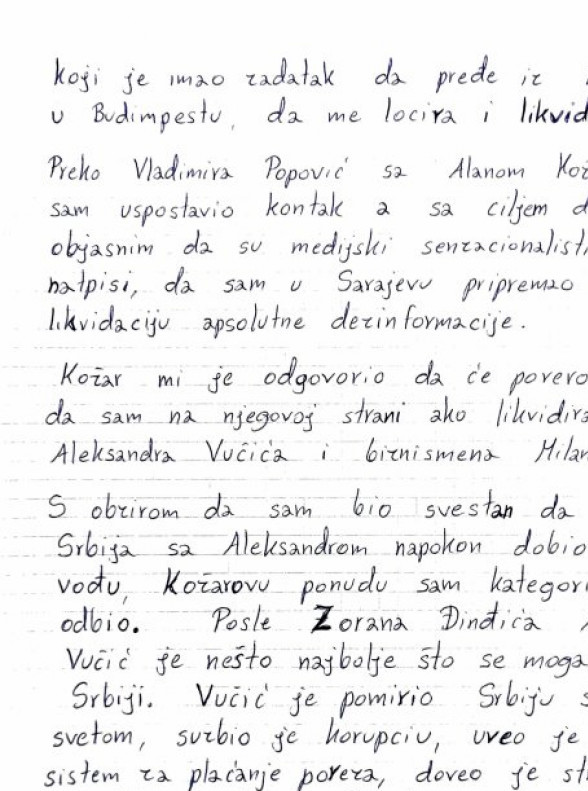 koji je imao zadatak da pređe iz
u Budimpestu, da me locira i likvid
Preko Vladimira Popović sa Alanom Kož
sam uspostavio kontak a sa ciljem d
objasnim da su medijski senzacionalist
natpisi, da sam u Sarajevu pripremao
likvidaciju apsolutne dezinformacije.
Kožar mi je odgovorio da će povero
da sam na njegovoj strani ako likvidira
Aleksandra Vučića i biznismena Milan
S obzirom da sam bio svestan da
Srbija sa Aleksandrom napokon dobio
vođu, Kožarovu ponudu sam kategori
odbio. Posle Zorana Đinđića
Vučić je nešto najbolje što se moga
Srbiji. Vučić je pomirio Srbiju s
svetom, suzbio je korupciu, uveo je
sistem za plaćanje poreza, doveo je st